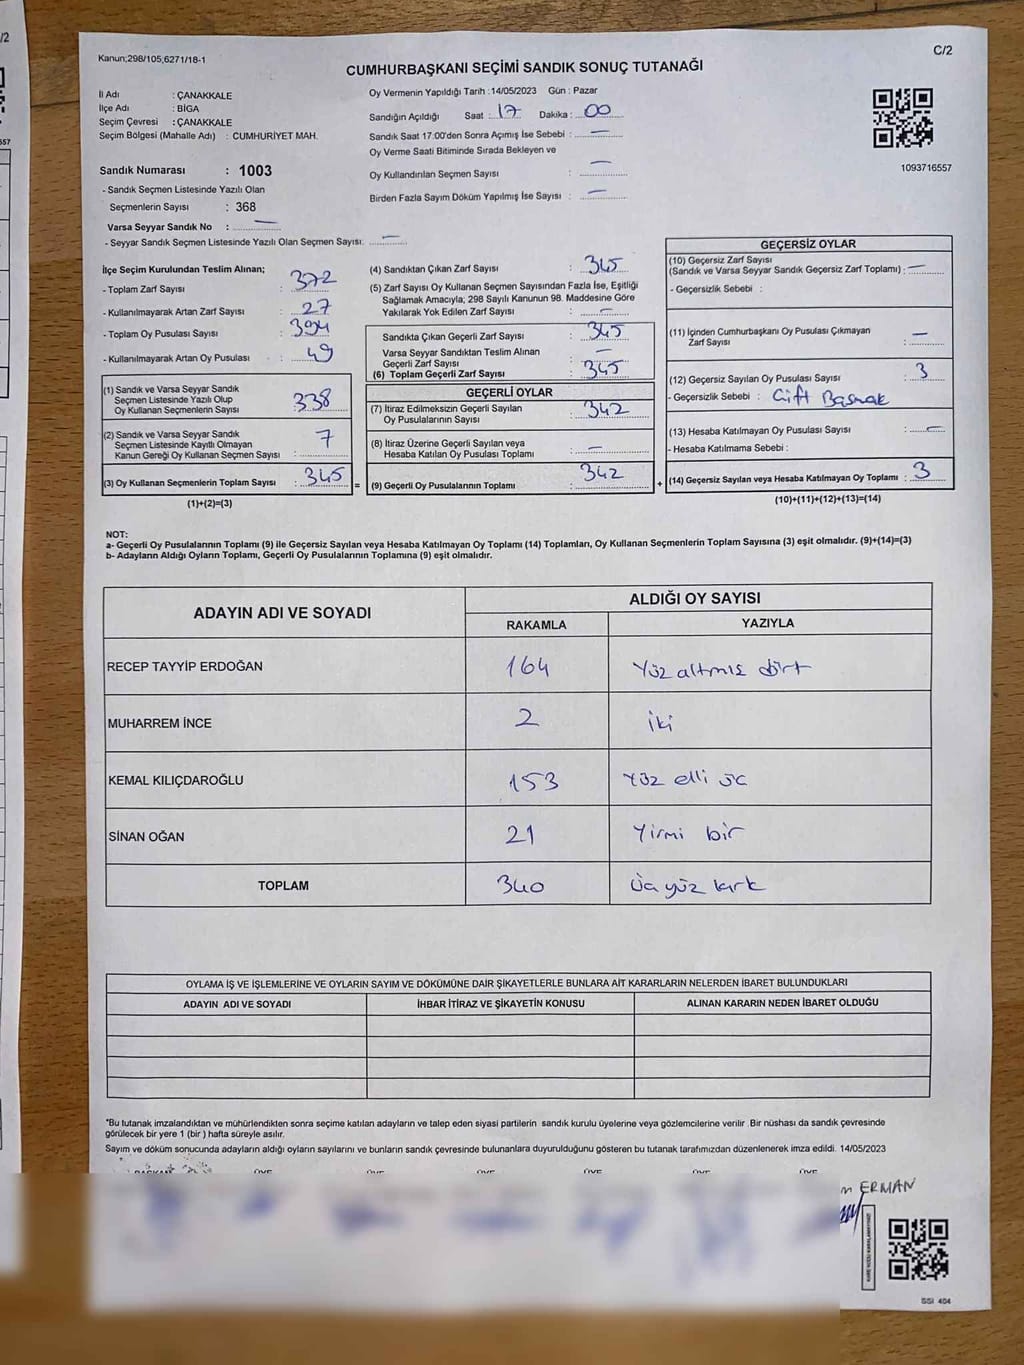 /2
557
C/2
Kanun;298/105,6271/18-1
CUMHURBAŞKANI SEÇİMİ SANDIK SONUÇ TUTANAĞI
1093716557
İl Adı : ÇANAKKALE
İlçe Adı : BİGA
Seçim Çevresi : ÇANAKKALE
Seçim Bölgesi (Mahalle Adı) : CUMHURİYET MAH.
Sandık Numarası : 1003
- Sandık Seçmen Listesinde Yazılı Olan
Seçmenlerin Sayısı : 368
Varsa Seyyar Sandık No : —
- Seyyar Sandık Seçmen Listesinde Yazılı Olan Seçmen Sayısı: —
Oy Vermenin Yapıldığı Tarih : 14/05/2023 Gün : Pazar
Sandığın Açıldığı Saat : 17 Dakika : 00
Sandık Saat 17:00'den Sonra Açımış İse Sebebi : —
Oy Verme Saati Bitiminde Sırada Bekleyen ve
Oy Kullandırılan Seçmen Sayısı : —
Birden Fazla Sayım Döküm Yapılmış İse Sayısı : —
İlçe Seçim Kurulundan Teslim Alınan;
- Toplam Zarf Sayısı : 372
- Kullanılmayarak Artan Zarf Sayısı : 27
- Toplam Oy Pusulası Sayısı : 394
- Kullanılmayarak Artan Oy Pusulası : 49
(1) Sandık ve Varsa Seyyar Sandık
Seçmen Listesinde Yazılı Olup
Oy Kullanan Seçmenlerin Sayısı : 338
(2) Sandık ve Varsa Seyyar Sandık
Seçmen Listesinde Kayıtlı Olmayan
Kanun Gereği Oy Kullanan Seçmen Sayısı : 7
(3) Oy Kullanan Seçmenlerin Toplam Sayısı : 345 =
(1)+(2)=(3)
(4) Sandıktan Çıkan Zarf Sayısı : 345
(5) Zarf Sayısı Oy Kullanan Seçmen Sayısından Fazla İse, Eşitliği
Sağlamak Amacıyla; 298 Sayılı Kanunun 98. Maddesine Göre
Yakılarak Yok Edilen Zarf Sayısı : —
Sandıkta Çıkan Geçerli Zarf Sayısı : 345
Varsa Seyyar Sandıktan Teslim Alınan
Geçerli Zarf Sayısı : —
(6) Toplam Geçerli Zarf Sayısı : 345
GEÇERLİ OYLAR
(7) İtiraz Edilmeksizin Geçerli Sayılan
Oy Pusulalarının Sayısı : 342
(8) İtiraz Üzerine Geçerli Sayılan veya
Hesaba Katılan Oy Pusulası Toplamı : —
(9) Geçerli Oy Pusulalarının Toplamı : 342 +
GEÇERSİZ OYLAR
(10) Geçersiz Zarf Sayısı
(Sandık ve Varsa Seyyar Sandık Geçersiz Zarf Toplamı) : —
- Geçersizlik Sebebi :
(11) İçinden Cumhurbaşkanı Oy Pusulası Çıkmayan
Zarf Sayısı : —
(12) Geçersiz Sayılan Oy Pusulası Sayısı : 3
- Geçersizlik Sebebi : Çift Basmak
(13) Hesaba Katılmayan Oy Pusulası Sayısı : —
- Hesaba Katılmama Sebebi :
(14) Geçersiz Sayılan veya Hesaba Katılmayan Oy Toplamı : 3
(10)+(11)+(12)+(13)=(14)
NOT:
a- Geçerli Oy Pusulalarının Toplamı (9) ile Geçersiz Sayılan veya Hesaba Katılmayan Oy Toplamı (14) Toplamları, Oy Kullanan Seçmenlerin Toplam Sayısına (3) eşit olmalıdır. (9)+(14)=(3)
b- Adayların Aldığı Oyların Toplamı, Geçerli Oy Pusulalarının Toplamına (9) eşit olmalıdır.
ADAYIN ADI VE SOYADI ALDIĞI OY SAYISI
RAKAMLA YAZIYLA
RECEP TAYYİP ERDOĞAN 164 Yüz altmış dört
MUHARREM İNCE 2 iki
KEMAL KILIÇDAROĞLU 153 Yüz elli üç
SİNAN OĞAN 21 Yirmi bir
TOPLAM 340 Üç yüz kırk
OYLAMA İŞ VE İŞLEMLERİNE VE OYLARIN SAYIM VE DÖKÜMÜNE DAİR ŞİKAYETLERLE BUNLARA AİT KARARLARIN NELERDEN İBARET BULUNDUKLARI
ADAYIN ADI VE SOYADI İHBAR İTİRAZ VE ŞİKAYETİN KONUSU ALINAN KARARIN NEDEN İBARET OLDUĞU
*Bu tutanak imzalandıktan ve mühürlendikten sonra seçime katılan adayların ve talep eden siyasi partilerin sandık kurulu üyelerine veya gözlemcilerine verilir .Bir nüshası da sandık çevresinde
görülecek bir yere 1 (bir ) hafta süreyle asılır.
Sayım ve döküm sonucunda adayların aldığı oyların sayılarını ve bunların sandık çevresinde bulunanlara duyurulduğunu gösteren bu tutanak tarafımızdan düzenlenerek imza edildi. 14/05/2023
BAŞKAN ÜYE ÜYE ÜYE ÜYE ÜYE ÜYE
ERMAN
SSI 404